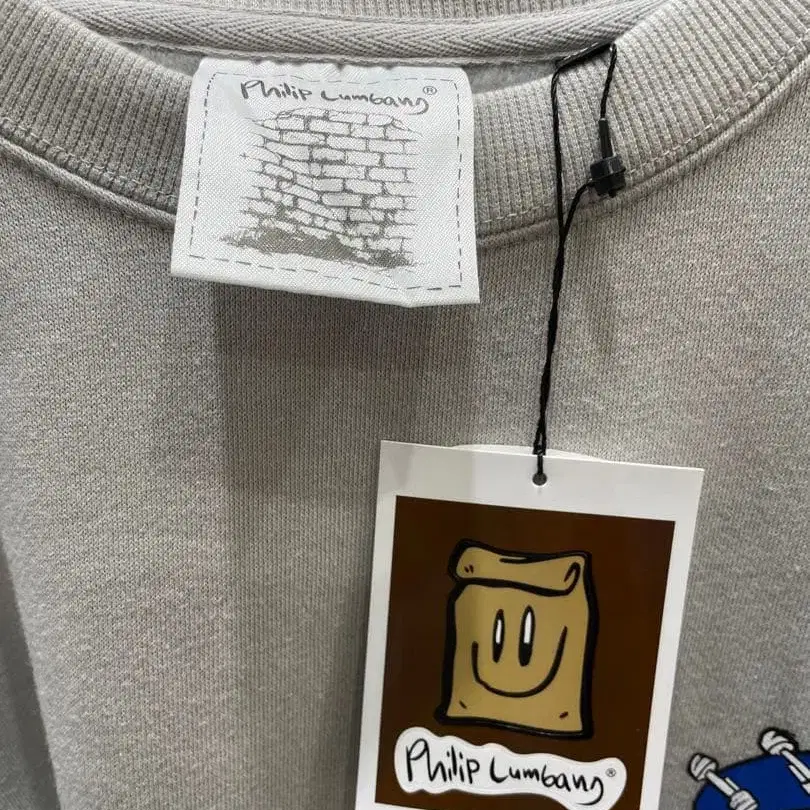 Philip Lumbang®
Philip Lumbang®